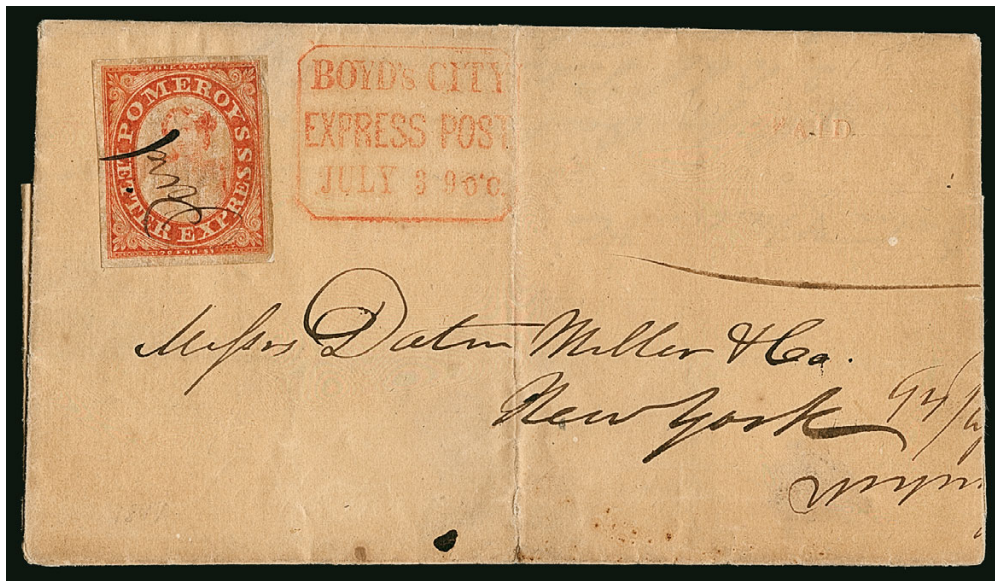 POMEROY'S
LETTER EXPRESS
BOYD'S CITY
EXPRESS POST
JULY 3 9 O'C.
PAID
Messrs Dater Miller & Co.
New York